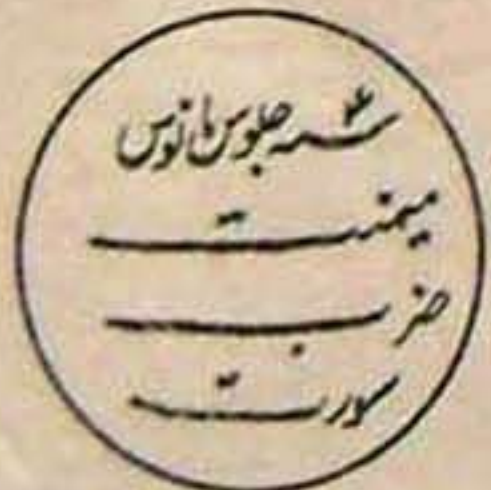 سنه ۴ جلوس مانوس
میمنت
ضرب
سورت